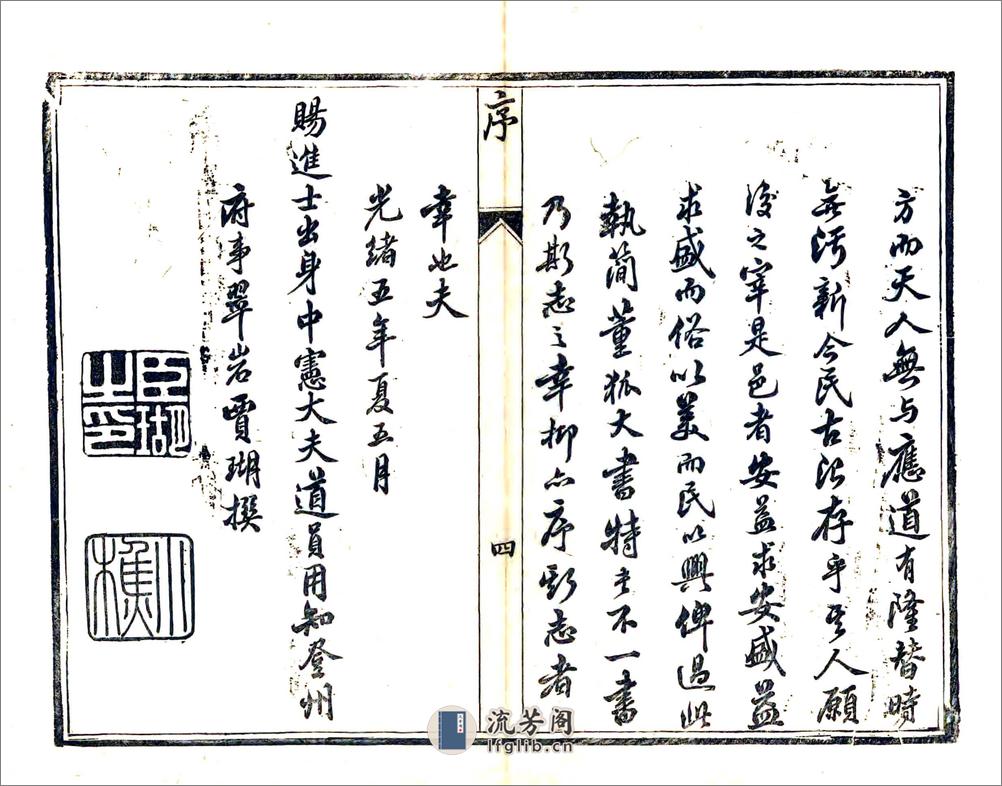 方而天人無与應道有隆替時
無污新今民古治存乎其人願
後之宰是邑者安益求安盛益
求盛而俗以美而民以興俾過此
執簡董狐大書特書不一書
乃斯志之幸抑亦序斯志者
序
四
幸也夫
光緒五年夏五月
賜進士出身中憲大夫道員用知登州
府事翠岩賈瑚撰
臣瑚之印
樵
流芳阁
lfglib.cn